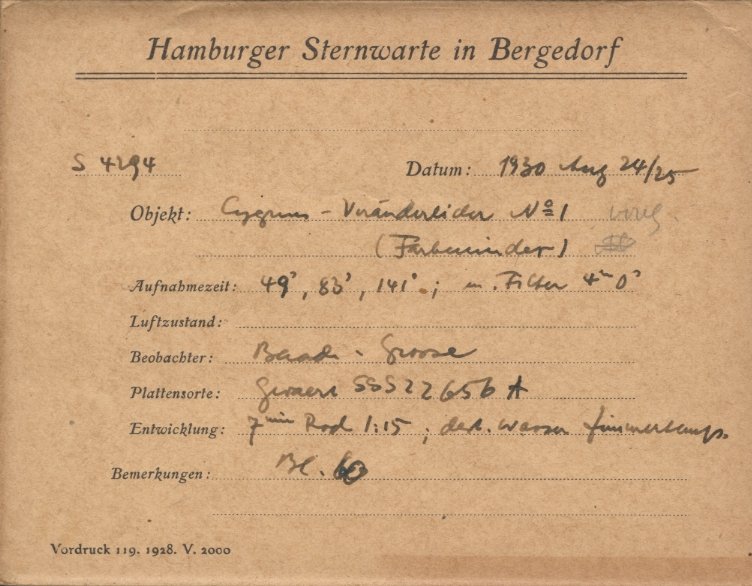 Hamburger Sternwarte in Bergedorf
S 4294 Datum: 1930 Aug 24/25
Objekt: Cygnus - Veränderlicher Nº 1
(Farbenindex)
Aufnahmezeit: 49s, 83s, 141s; m. Filter 4m 0s
Luftzustand:
Beobachter: Baade - Grosse
Plattensorte: Gevaert SSS 22656 A
Entwicklung: 7min Rod 1:15; dest. Wasser Zimmertemp.
Bemerkungen: Bl. 60
Vordruck 119. 1928. V. 2000